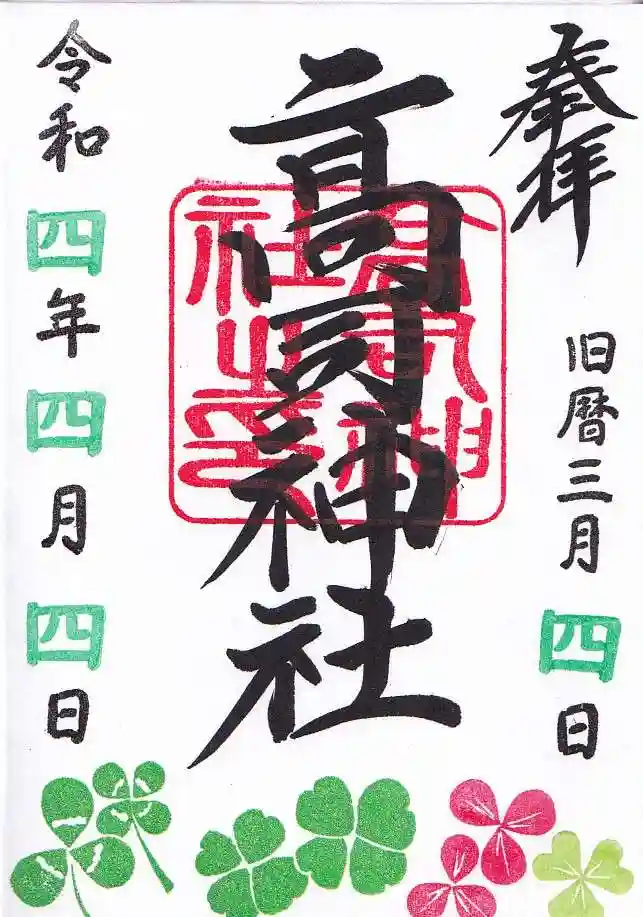 奉拝
旧暦三月四日
高司神社
高司神
社之印
令和四年四月四日